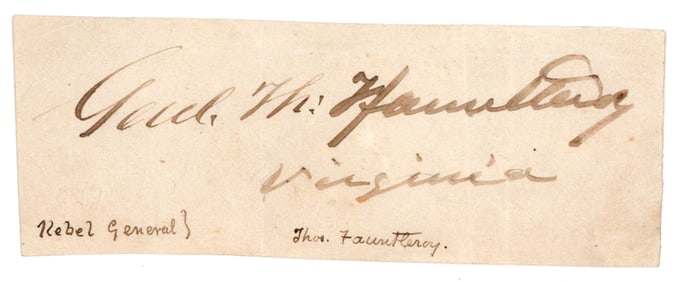 Genl. Th: Fauntleroy
Virginia
Rebel General}
Thos. Fauntleroy.